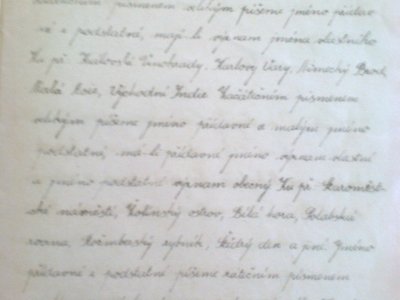 písmenem velkým píšeme jméno přídav
né i podstatné, mají-li význam jména vlastního
Ku př. Královské Vinohrady, Karlovy Vary, Německý Brod,
Malá Asie, Východní Indie Začátečním písmenem
velkým píšeme jméno přídavné a malým jméno
podstatné, má-li přídavné jméno význam vlastní
a jméno podstatné význam obecný Ku př. Staroměst-
ské náměstí, Žofínský ostrov, Bílá hora, Polabská
rovina, Rožmberský rybník, Štědrý den a jiné. Jméno
přídavné i podstatné píšeme začečním písmenem